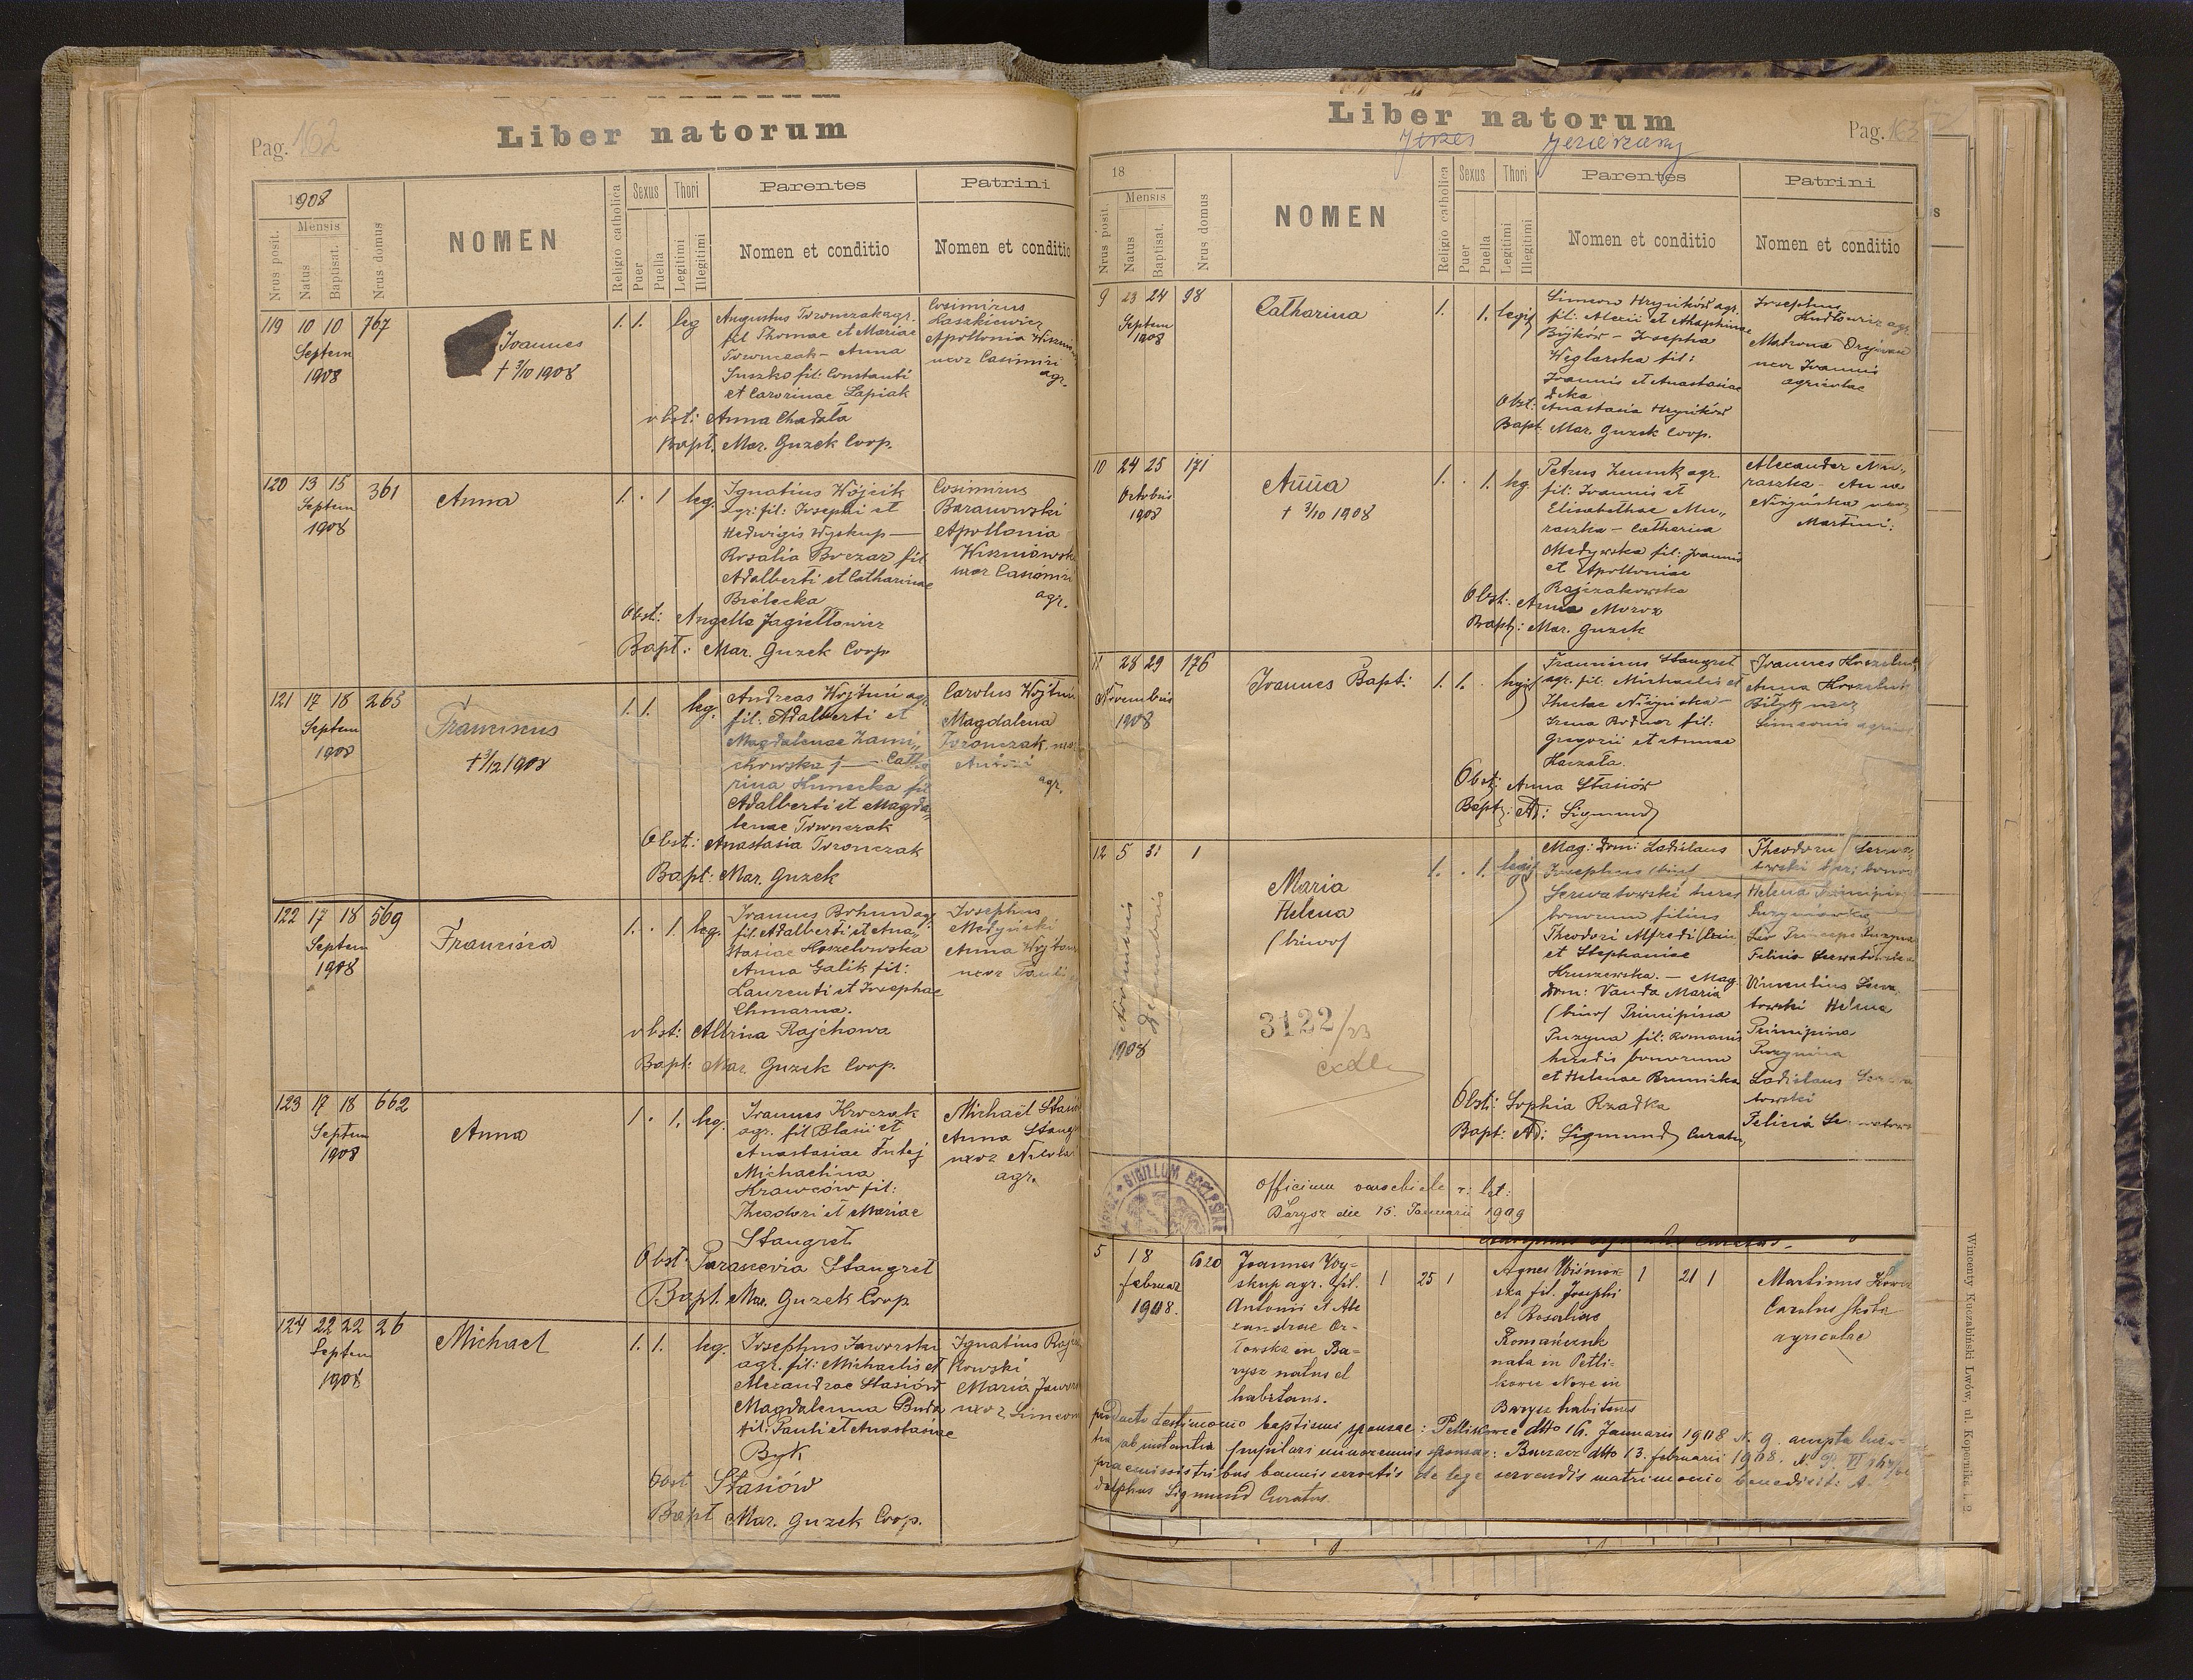 Pag. 162
Liber natorum
1908
Nrus posit.
Mensis
Natus
Baptisat.
Nrus domus
NOMEN
Religio catholica
Sexus
Puer
Puella
Thori
Legitimi
Illegitimi
Parentes
Nomen et conditio
Patrini
Nomen et conditio
119 10 10 767
Septem
1908
Joannes
† 3/10 1908
1. 1. leg
Augustus Toronczak agr.
fil Thomae et Mariae
Toronczak - Anna
Suszko fil: Constanti
et Carorinae Łapiak
obst: Anna Chadala
Bapt. Mar. Guzek Coop.
Casimirus
Laszkiewicz
Apollonia
uxor Casimiri
agr.
120 13 15 361
Septem
1908
Anna
1. . 1 leg.
Ignatius Wójcik
agr. fil: Josephi et
Hedwigis Wyskup —
Rosalia Boczar fil
Adalberti et Catharinae
Bielecka
Obst: Angella Jagiełłowicz
Bapt: Mar. Guzek Coop
Casimirus
Baranowski
Apollonia
Wiszniowsk
uxor Casimiri
agr.
121 17 18 265
Septem
1908
Franciscus
† 3/12 1908
1. 1. leg.
Andreas Wojtuń agr
fil: Adalberti et
Magdalenae Zami„
chowska — Cath
rina Kunecka fil
Adalberti et Magda„
lenae Toronczak
Obst: Anastasia Toronczak
Bapt: Mar. Guzek
Carolus Wojtuń
Magdalena
Toronczak
agr.
122 17 18 569
Septem
1908
Francisca
1. . 1. leg.
Joannes Bohun agr
fil. Adalberti et Ana„
stasiae Hoszelowska
Anna Galik fil:
Laurenti et Josephae
Chmarna.
obst: Altrina Rajchowa
Bapt: Mar. Guzek Coop.
Josephus
Medyński
Anna
uxor Pauli
123 17 18 662
Septem
1908
Anna
1 . 1. leg.
Joannes Kroczak
agr. fil Blasii et
Anastasiae Futej
Michaelina
Krawców fil:
Theodori et Mariae
Stangret
Obst: Parascevia Stangret
Bapt. Mar. Guzek Coop
Michael
Anna
uxor
agr.
124 22 22 26
Septem
1908
Michael
1. 1. leg.
Josephus Jaworski
agr. fil: Michaelis et
Alexandrae Stasiów
Magdalenna Buda
fil: Pauli et Anastasiae
Byk
Obst Stasiów
Bapt Mar. Guzek Coop.
Ignatius
kowski
Maria
uxor
Liber natorum
Jezierzany
Pag. 163
18
Nrus posit.
Mensis
Natus
Baptisat.
Nrus domus
NOMEN
Religio catholica
Sexus
Puer
Puella
Thori
Legitimi
Illegitimi
Parentes
Nomen et conditio
Patrini
Nomen et conditio
9 23 24 98
Septem
1908
Catharina
1. 1. legit
Simeon Hryńków agr.
fil: Alexii et Ahaphinae
Bójków - Josepha
Węglarska fil:
Joannis et Anastasiae
Obst: Anastasia Hryńków
Bapt. Mar. Guzek Coop.
Josephus
agr.
Matrona
uxor Joannis
agricolae
10 24 25 171
Octobris
1908
Anna
† 3/10 1908
1. . 1. leg
Petrus agr.
fil: Joannis et
Elisabethae Mu„
raszka - Catharina
Medyńska fil: Joannis
et Apolloniae
Rajczakowska
Obst: Anna Moroz
Bapt: Mar. Guzek
Alexander Mu„
raszka - Anna
Niżyńska uxor
Martini:
11 28 29 176
Novembris
1908
Joannes Bapt:
1. 1. legit
Stangret
agr. fil: Michaelis et
Theclae Niżyńska -
Irena Bodnar fil:
Gregorii et Annae
Kaczała.
Obst: Anna Stasiów
Bapt: Ad: Sigmund
Joannes
Anna
Bilyk uxor
Simeonis
12 5 31 1
Novembris
Decembris
1908
Maria
Helena
(binos)
3122/23
1. . 1. legit
Mag: Dom: Ladislaus
Josephus (bin)
Serwatowski heres
bonorum filius
Theodori Alfredi (bin)
et Stephaniae
Kruszewska. — Mag:
Dom: Vanda Maria
(bino) Principissa
Puzyna fil: Romani
heredis bonorum
et Helenae Brunicka
Obst: Sophia Rzadka
Bapt: Ad: Sigmund Curatus
Theodorus
Helena
Puzynowska
Princeps Puzyna
Vincentius
towski Helena
Principissa
Puzynina
Ladislaus
towski
Felicia
SIGILLUM ECCLESIAE
Officium parochiale r: lat:
Barysz die 15. Januarii 1909
5 18 620
februar
1908.
Joannes Wy-
skup agr. fil.
Antonii et Ale
xandrae Or-
łowska in Ba-
rysz natus et
habitans.
1 25 1
Agnes Wiśniow
ska fil. Josephi
et Rosaliae
Romańczuk
nata in Petli-
kowce Nowe in
Barysz habitans
1 21 1
Martinus
Carolus Skiba
agricolae
producto testimonio baptismi sponsae: Petlikowce dtto 16. Januarii 1908 N. 9. accepta licen-
tia ab instantia pupilari minorennis sponsae: Buczacz dtto 13. februarii 1908.
praemissis tribus bannis servatis de lege servandis matrimonio benedixit: A.
dolphus Sigmund Curatus.
Wincenty Kuczabiński Lwów, ul. Kopernika l. 2.